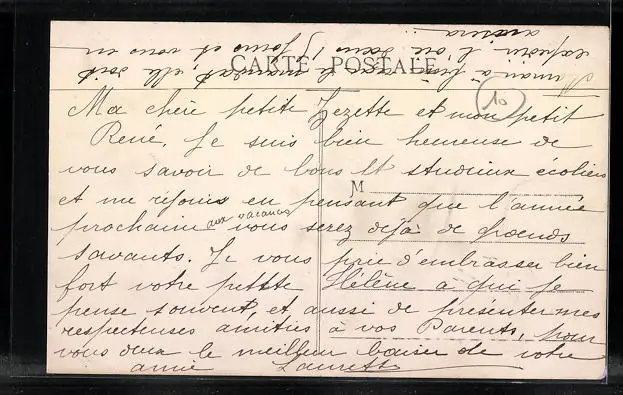 CARTE POSTALE
10
Ma chère petite Zezette et mon petit
René, Je suis bien heureuse de
vous savoir de bons et studieux écoliers
M
et me réjouis en pensant que l'année
prochaine aux vacances vous serez déjà de grands
savants. Je vous prie d'embrasser bien
fort votre petite Hélène à qui je
pense souvent, et aussi de présenter mes
respectueuses amitiés à vos Parents, pour
vous deux le meilleur baiser de votre
amie Laurette
maman a le mandat, elle doit
expédier l'un dans jours et vous en
avisera